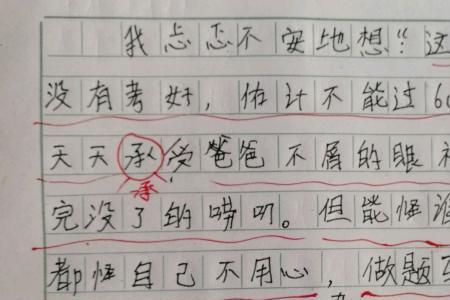 我忐忑不安地想：“这
没有考好，估计不能过6
天天承受爸爸不屑的眼
承
完没了的唠叨。但能怪谁
都怪自己不用心，做题